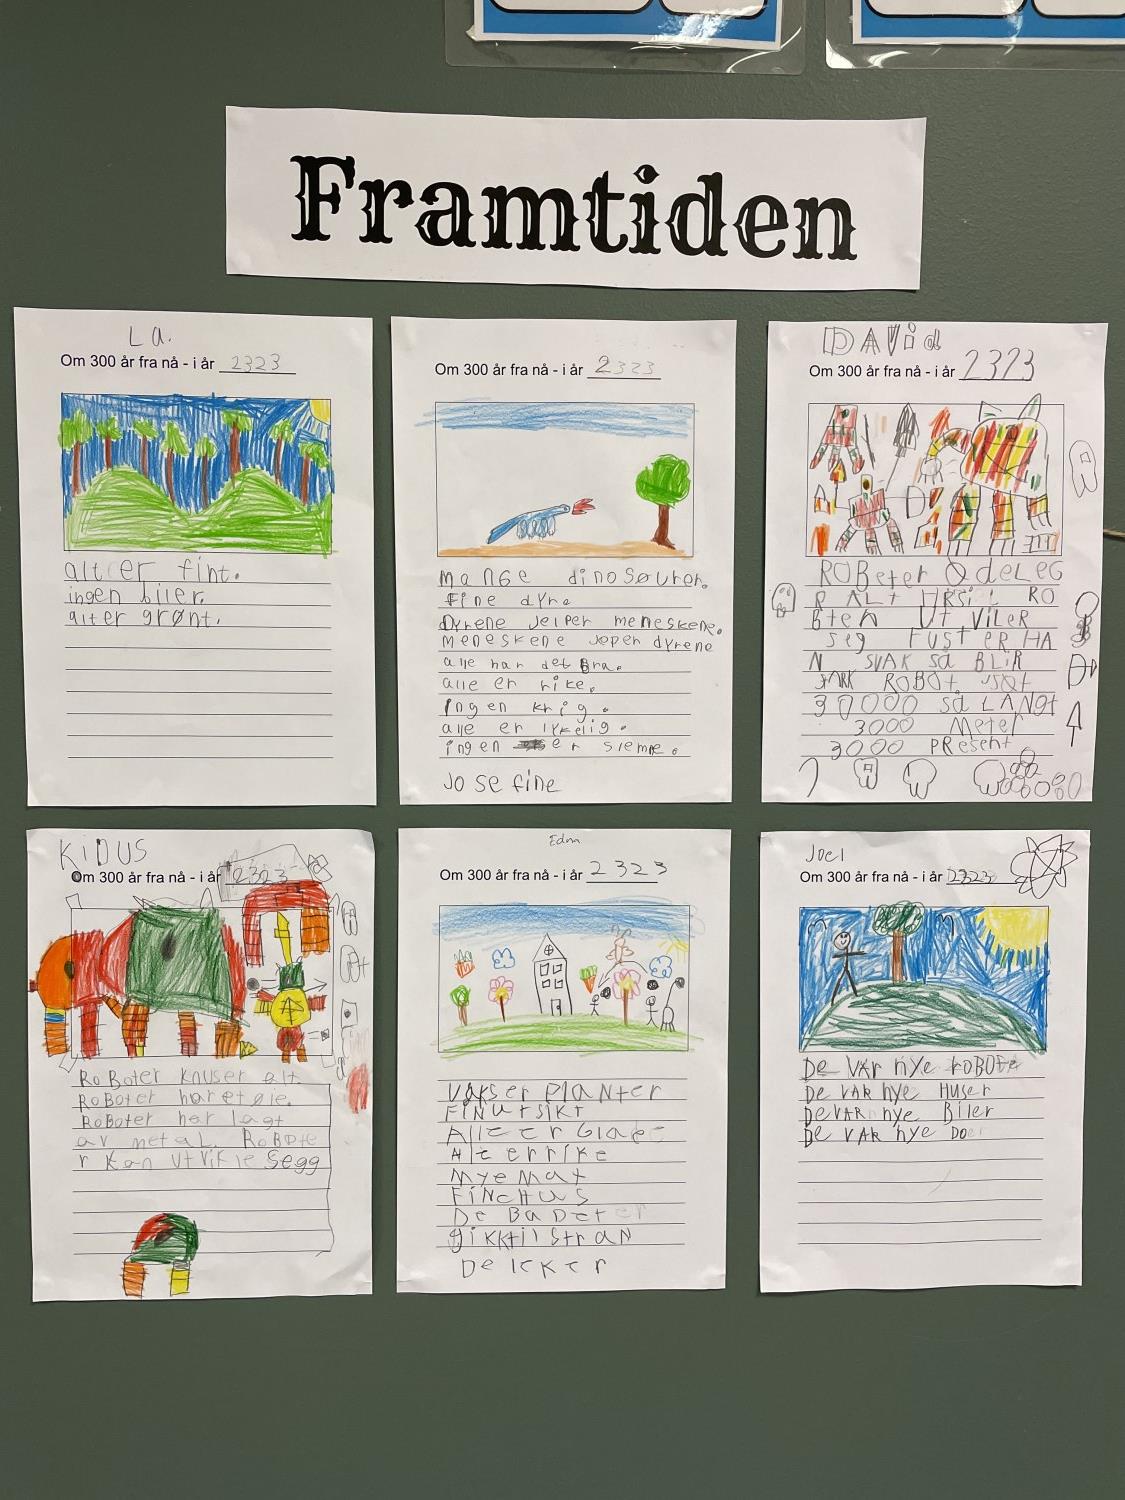 Framtiden
La.
Om 300 år fra nå - i år 2323
alt er fint.
ingen biler.
alt er grønt.
Om 300 år fra nå - i år 2323
mange dinosaurer.
fine dyre
Dyrene jelper meneskene.
meneskene jeper dyrene
alle har det bra.
alle er rike.
ingen krig.
alle er lykelig.
ingen er slemme.
Josefine
DAViD
Om 300 år fra nå - i år 2323
ROBeter ØdeLeG
R ALt
RO
Bten Ut ViLeR
seg FUSt ER HA
N SVAK så BLiR
ROBOt
30000 så LANGt
3000 Meter
3000 PResent
KiDUS
Om 300 år fra nå - i år 2323
RoBoter Knuser alt.
RoBoter har et øie.
RoBoter her lagt
av metal. RoBote
r Kan Utvikle Segg
Edna
Om 300 år fra nå - i år 2323
VAKSer PLANTer
FINUTSIKT
ALLe er GLADe
ALt er rike
Mye MAt
FINe HUS
De BADeter
gikk til StrAN
De leker
Joel
Om 300 år fra nå - i år 2323
De VAr nye roBOte
De VAR nye HUSer
De VAR nye Biler
De VAR nye Do